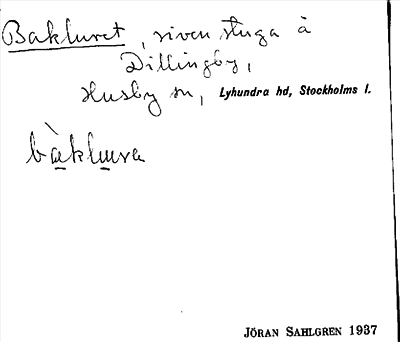 Bakluret, riven stuga å
Dillingby,
Husby sn, Lyhundra hd, Stockholms l.
bàklurva
JÖRAN SAHLGREN 1937